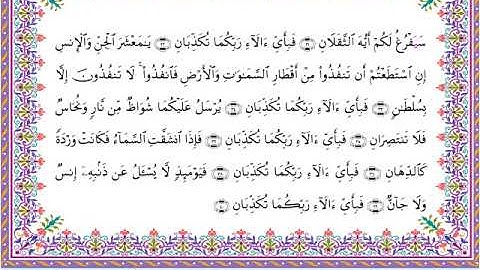 سَيَفْرُغُ لَكُمْ أَيُّهَ ٱلثَّقَلَانِ فَبِأَيِّ ءَالَآءِ رَبِّكُمَا تُكَذِّبَانِ يَٰمَعْشَرَ ٱلْجِنِّ وَٱلْإِنسِ
إِنِ ٱسْتَطَعْتُمْ أَن تَنفُذُوا۟ مِنْ أَقْطَارِ ٱلسَّمَٰوَٰتِ وَٱلْأَرْضِ فَٱنفُذُوا۟ ۚ لَا تَنفُذُونَ إِلَّا
بِسُلْطَٰنٍ فَبِأَيِّ ءَالَآءِ رَبِّكُمَا تُكَذِّبَانِ يُرْسَلُ عَلَيْكُمَا شُوَاظٌ مِّن نَّارٍ وَنُحَاسٌ
فَلَا تَنتَصِرَانِ فَبِأَيِّ ءَالَآءِ رَبِّكُمَا تُكَذِّبَانِ فَإِذَا ٱنشَقَّتِ ٱلسَّمَآءُ فَكَانَتْ وَرْدَةً
كَٱلدِّهَانِ فَبِأَيِّ ءَالَآءِ رَبِّكُمَا تُكَذِّبَانِ فَيَوْمَئِذٍ لَّا يُسْـَٔلُ عَن ذَنۢبِهِۦٓ إِنسٌ
وَلَا جَآنٌّ فَبِأَيِّ ءَالَآءِ رَبِّكُمَا تُكَذِّبَانِ